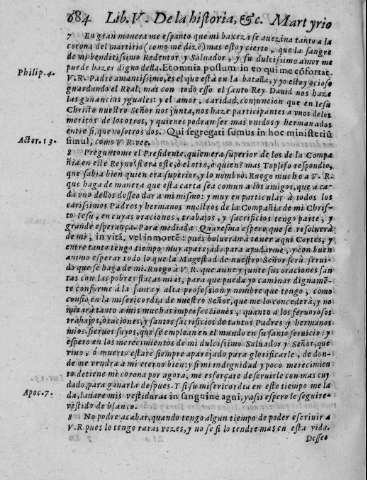 684 Lib. V. De la historia, &c. Martyrio
7 En gran manera me espanto que mi baxeza se avezina tanto a la
corona del martirio (como me dizē) mas estoy cierto, que la sangre
de mi bendītissimo Redentor y Salvador, y su dulcissimo amor me
puede hazer digno della. Et omnia possum in eo qui me cōfortat.
Philip. 4.
V.R. Padre amantissimo, es el que està en la batalla, y yo estoy ocioso
guardando el Real, mas con todo esso el santo Rey David nos haze
las ganancias iguales: y el amor, caridad, conjuncion que en Iesu
Christo nuestro Señor nos junta, nos haze participantes a unos de los
meritos de los otros, y quiẽ se podran ser mas unidos y hermanados
entre si, que nosotros dos. Qui segregati sumus in hoc ministeriū
Actor. 13.
simul, como V.R. vee.
8 Preguntome el Presidente, quien era superior de los de la Compa
ñia en este Reyno, si era este, o el otro, o quien? mas Topliso respondio,
que sabia bien quien era superior, y lo nombrò. Ruego mucho a V.R.
que haga de manera que esta carta sea comun a los amigos, que a ca-
da uno dellos dosseo dar a mi mismo: y muy en particular à todos los
carissimos Padres y hermanos nuestros de la Compañia de mi Chris-
to Iesu, en cuyas oraciones, trabajos, y sacrificios tengo parte, y
grande esperança. Para mediada Quaresma espero que se resolverà
de mi, in vita, vel in morte: pues bolveràn a tener aqui Cortes, y
entre tanto tengo tiempo muy aparejado para ayudarme, y con buen
animo esperar todo lo que la Magestad de nuestro Señor serà servi-
do que se haga de mi. Ruego à V.R. que aune y junte sus oraciones san
tas con las pobres flacas mias, para que pueda yo caminar dignamē
te conforme à la santa y alta profession y nombre que tengo, como
confio en la misericordia de nuestro Señor, que me lo concederà, y no
mirarà tanto a mis muchas imperfecciones, quanto a los fervorosos
trabajos, oraciones, y santos sacrificios de tantos Padres y hermanos
mios, siervos suyos, que se emplean en el mundo en su santo servicio: y
espero en los merecimientos de mi dulcissimo Salvador y Señor, que
vivo, ò muerto estarè siempre aparejado para glorificarle, de don-
de me vendrà a mi eterno bien: y si mi indignidad y poco merecimien
to detiene mi corona por agora, me esforçarè de servirle con mas cuy
dado, para ganarla despues. Y si su misericordia en este tiempo me la
da, lavare mis vestiduras in sanguine agni, y assi espero le seguire
Apoc. 7.
vestido de blanco.
8 No podre acabar, quando tengo algun tiempo de poder escrivir a
V.R. pues lo tengo raras vezes, y no sè si lo tendrè mas en esta vida.
Desseo